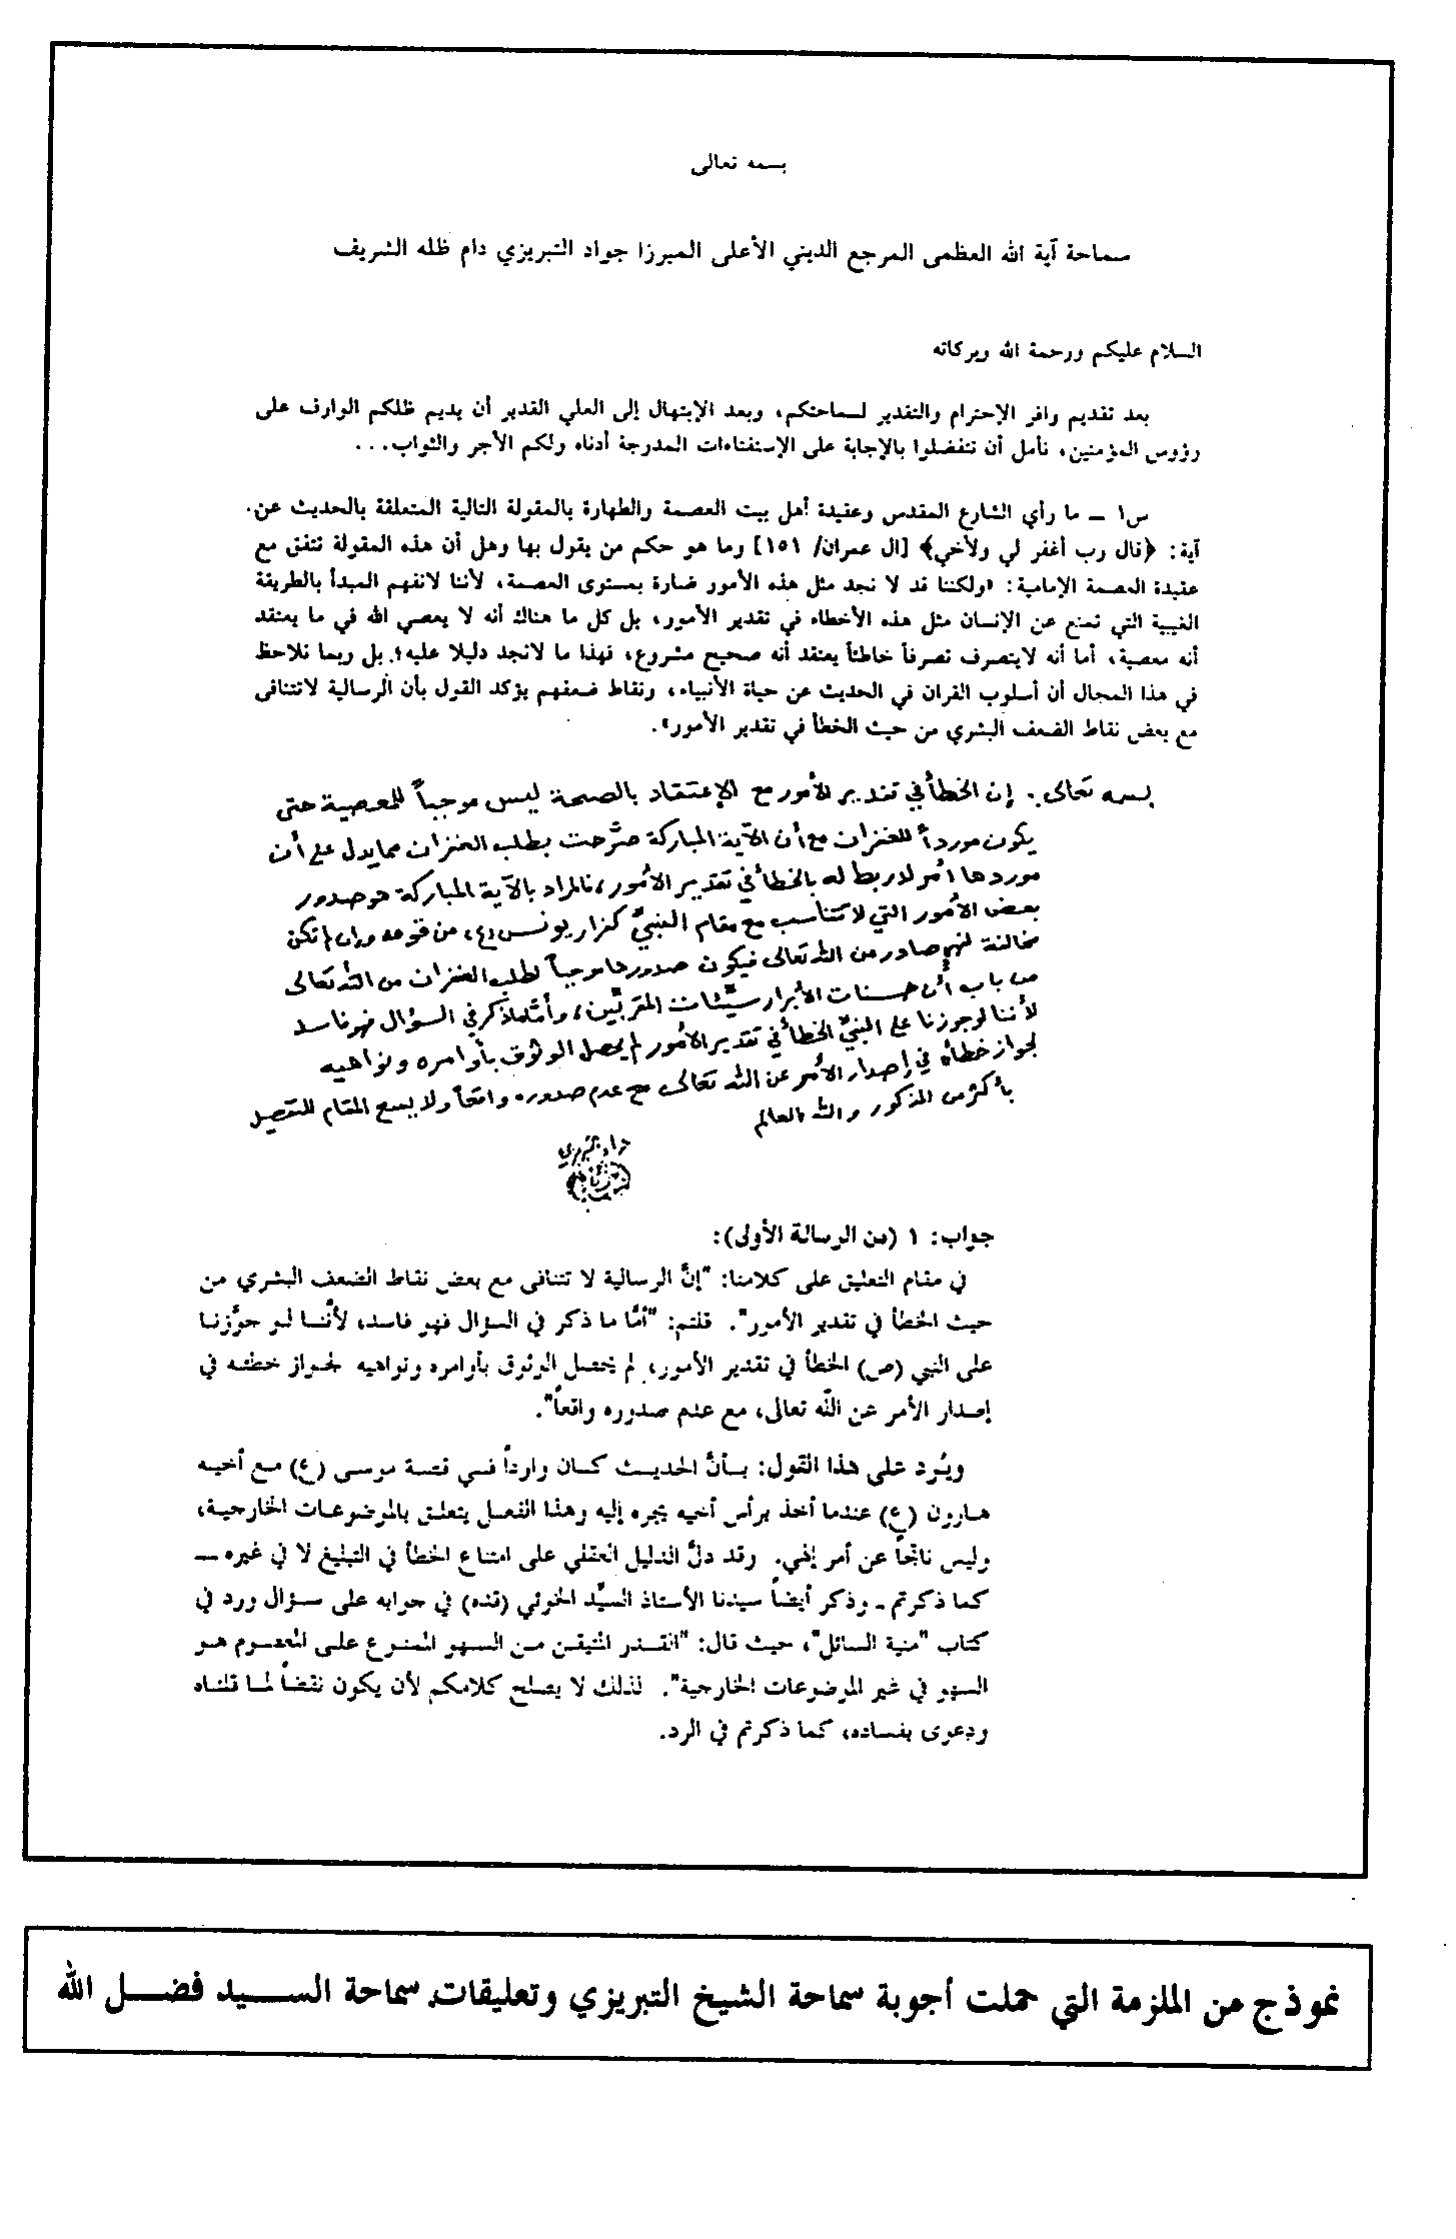 بسمه تعالى
سماحة آية الله العظمى المرجع الديني الأعلى الميرزا جواد التبريزي دام ظله الشريف
السلام عليكم ورحمة الله وبركاته
بعد تقديم وافر الإحترام والتقدير لسماحتكم، وبعد الإبتهال إلى العلي القدير أن يديم ظلكم الوارف على
رؤوس المؤمنين، نأمل أن تتفضلوا بالإجابة على الإستفتاءات المدرجة أدناه ولكم الأجر والثواب...
س١ – ما رأي الشارع المقدس وعقيدة أهل بيت العصمة والطهارة بالمقولة التالية المتعلقة بالحديث عن
آية: ﴿قال رب أغفر لي ولأخي﴾ [ال عمران/ ١٥١] وما هو حكم من يقول بها وهل أن هذه المقولة تتفق مع
عقيدة العصمة الإمامية: «ولكننا قد لا نجد مثل هذه الأمور ضارة بمستوى العصمة، لأننا لانفهم المبدأ بالطريقة
الغيبية التي تمنع عن الإنسان مثل هذه الأخطاء في تقدير الأمور، بل كل ما هناك أنه لا يعصي الله في ما يعتقد
أنه معصية، أما أنه لايتصرف تصرفاً خاطئاً يعتقد أنه صحيح مشروع، فهذا ما لانجد دليلا عليه؛ بل ربما نلاحظ
في هذا المجال أن أسلوب القران في الحديث عن حياة الأنبياء، ونقاط ضعفهم يؤكد القول بأن الرسالية لاتتنافى
مع بعض نقاط الضعف البشري من حيث الخطأ في تقدير الأمور».
بسمه تعالى. إن الخطأ في تقدير الأمور مع الإعتقاد بالصحة ليس موجباً للمعصية حتى
يكون مورداً للغفران مع أن الآية المباركة صرّحت بطلب الغفران مما يدل على أن
موردها أمر لا ربط له بالخطأ في تقدير الأمور، فالمراد بالآية المباركة هو صدور
بعض الأمور التي لا تتناسب مع مقام النبيّ كفرار يونس (ع) من قومه وإن لم تكن
مخالفة لنهي صادر من الله تعالى فيكون صدورها موجباً لطلب الغفران من الله تعالى
من باب أن حسنات الأبرار سيّئات المقربّين، وأمّا ما ذكر في السؤال فهو فاسد
لأننا لو جوزنا على النبيّ الخطأ في تقدير الأمور لم يحصل الوثوق بأوامره ونواهيه
لجواز خطأه في إصدار الأمر عن الله تعالى مع عدم صدوره واقعاً ولا يسع المقام للتفصيل
بأكثر من المذكور والله العالم
جواد التبريزي
جواب: ١ (من الرسالة الأولى):
في مقام التعليق على كلامنا: "إنَّ الرسالية لا تتنافى مع بعض نقاط الضعف البشري من
حيث الخطأ في تقدير الأمور". قلتم: "أمَّا ما ذكر في السؤال فهو فاسد، لأنَّنا لو جوَّزنا
على النبي (ص) الخطأ في تقدير الأمور، لم يحصل الوثوق بأوامره ونواهيه لجواز خطئه في
إصدار الأمر عن الله تعالى، مع عدم صدوره واقعاً".
ويُرد على هذا القول: بأنَّ الحديث كان وارداً في قصة موسى (ع) مع أخيه
هارون (ع) عندما أخذ برأس أخيه يجره إليه وهذا الفعل يتعلق بالموضوعات الخارجية،
وليس ناتجاً عن أمر إلهي. وقد دلَّ الدليل العقلي على امتناع الخطأ في التبليغ لا في غيره –
كما ذكرتم - وذكر أيضاً سيدنا الأستاذ السيِّد الخوئي (قده) في جوابه على سؤال ورد في
كتاب "منية السائل"، حيث قال: "القدر المتيقن من السهو الممنوع على المعصوم هو
السهو في غير الموضوعات الخارجية". لذلك لا يصلح كلامكم لأن يكون نقضاً لما قلناه
ودعوى بفساده، كما ذكرتم في الرد.
نموذج من الملزمة التي حملت أجوبة سماحة الشيخ التبريزي وتعليقات سماحة السيد فضل الله